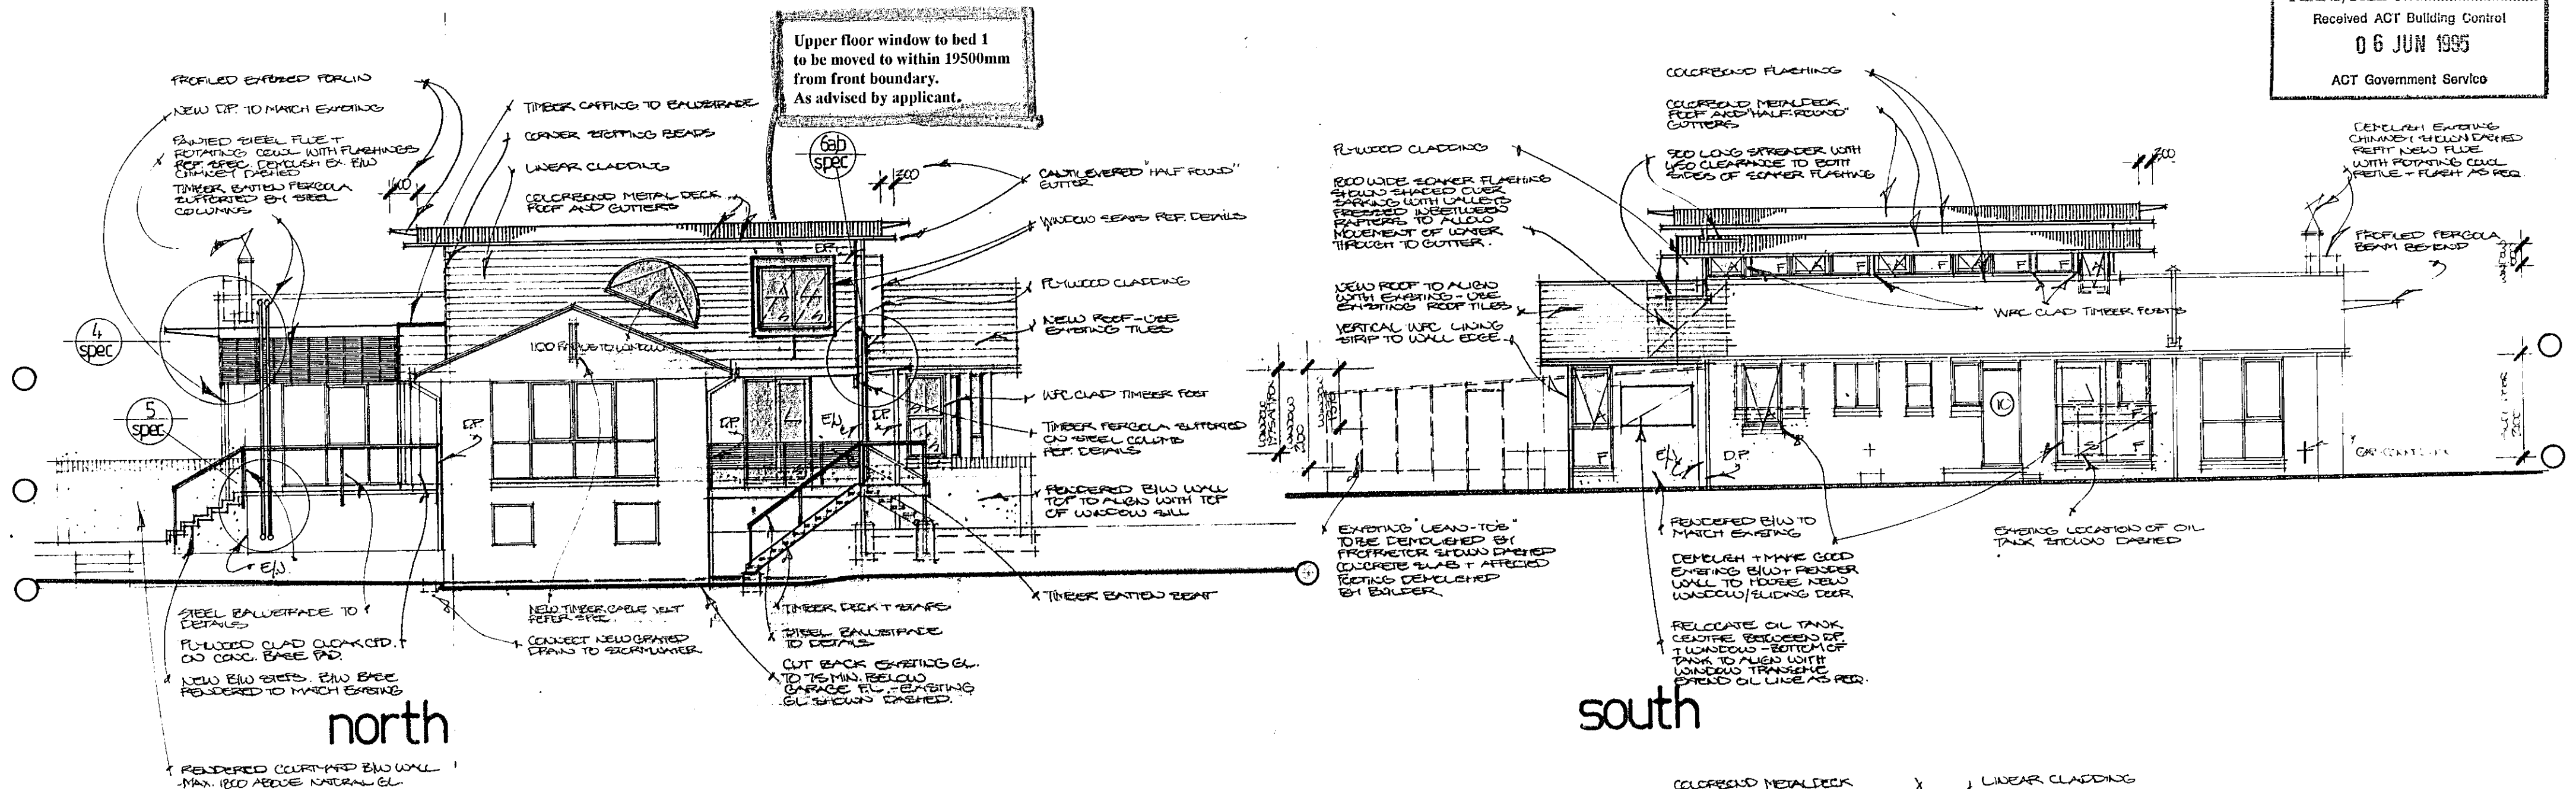 Upper floor window to bed 1
to be moved to within 19500mm
from front boundary.
As advised by applicant.
Received ACT Building Control
06 JUN 1995
ACT Government Service
PROFILED EXPOSED PURLIN
NEW D.P. TO MATCH EXISTING
PAINTED STEEL FLUE +
ROTATING COWL WITH FLASHINGS
REF. SPEC. DEMOLISH EX. B/W
CHIMNEY DASHED
TIMBER BATTEN PERGOLA
SUPPORTED BY STEEL
COLUMNS
TIMBER CAPPING TO BALUSTRADE
CORNER STOPPING BEADS
LINEAR CLADDING
COLORBOND METAL DECK
ROOF AND GUTTERS
6ab
spec
300
CANTILEVERED "HALF ROUND"
GUTTER
WINDOW SEATS REF. DETAILS
PLYWOOD CLADDING
NEW ROOF-USE
EXISTING TILES
WRC CLAD TIMBER POST
TIMBER PERGOLA SUPPORTED
ON STEEL COLUMNS
REF. DETAILS
RENDERED B/W WALL
TOP TO ALIGN WITH TOP
OF WINDOW SILL
TIMBER BATTEN SEAT
4
spec
5
spec
D.P.
D.P.
D.P.
E/J
D.P.
E/J.
STEEL BALUSTRADE TO
DETAILS
PLYWOOD CLAD CLOAK CPD.
ON CONC. BASE PAD.
NEW B/W STEPS. B/W BASE
RENDERED TO MATCH EXISTING
NEW TIMBER GABLE VENT
REFER SPEC.
CONNECT NEW GRATED
DRAIN TO STORMWATER
TIMBER DECK + STAIRS
STEEL BALUSTRADE
TO DETAILS
CUT BACK EXISTING GL.
TO 75 MIN. BELOW
GARAGE FL. - EXISTING
GL SHOWN DASHED.
north
RENDERED COURTYARD B/W WALL
-MAX. 1800 ABOVE NATURAL GL.
COLORBOND FLASHING
COLORBOND METALDECK
ROOF AND "HALF-ROUND"
GUTTERS
PLYWOOD CLADDING
900 LONG SPREADER WITH
CLEARANCE TO BOTH
SIDES OF SOAKER FLASHING
WIDE SOAKER FLASHING
SHOWN SHADED OVER
SARKING WITH VALLEYS
PRESSED INBETWEEN
RAFTERS TO ALLOW
MOVEMENT OF WATER
THROUGH TO GUTTER.
NEW ROOF TO ALIGN
WITH EXISTING - USE
EXISTING ROOF TILES
VERTICAL WRC LINING
STRIP TO WALL EDGE
300
DEMOLISH EXISTING
CHIMNEY SHOWN DASHED
REFIT NEW FLUE
WITH ROTATING COWL
RETILE + FLASH AS REQ.
PROFILED PERGOLA
BEAM BEYOND
WRC CLAD TIMBER POSTS
F
F
F
F
F
F
10
F
E/J
D.P.
S
F
EXISTING "LEAN-TO'S"
TO BE DEMOLISHED BY
PROPRIETOR SHOWN DASHED
CONCRETE SLAB + AFFECTED
FOOTING DEMOLISHED
BY BUILDER.
RENDERED B/W TO
MATCH EXISTING
DEMOLISH + MAKE GOOD
EXISTING B/W + RENDER
WALL TO HOUSE NEW
WINDOW/SLIDING DOOR
EXISTING LOCATION OF OIL
TANK SHOWN DASHED
RELOCATE OIL TANK
CENTRE BETWEEN DP.
+ WINDOW - BOTTOM OF
TANK TO ALIGN WITH
WINDOW TRANSOME
EXTEND OIL LINE AS REQ.
south
COLORBOND METALDECK
LINEAR CLADDING